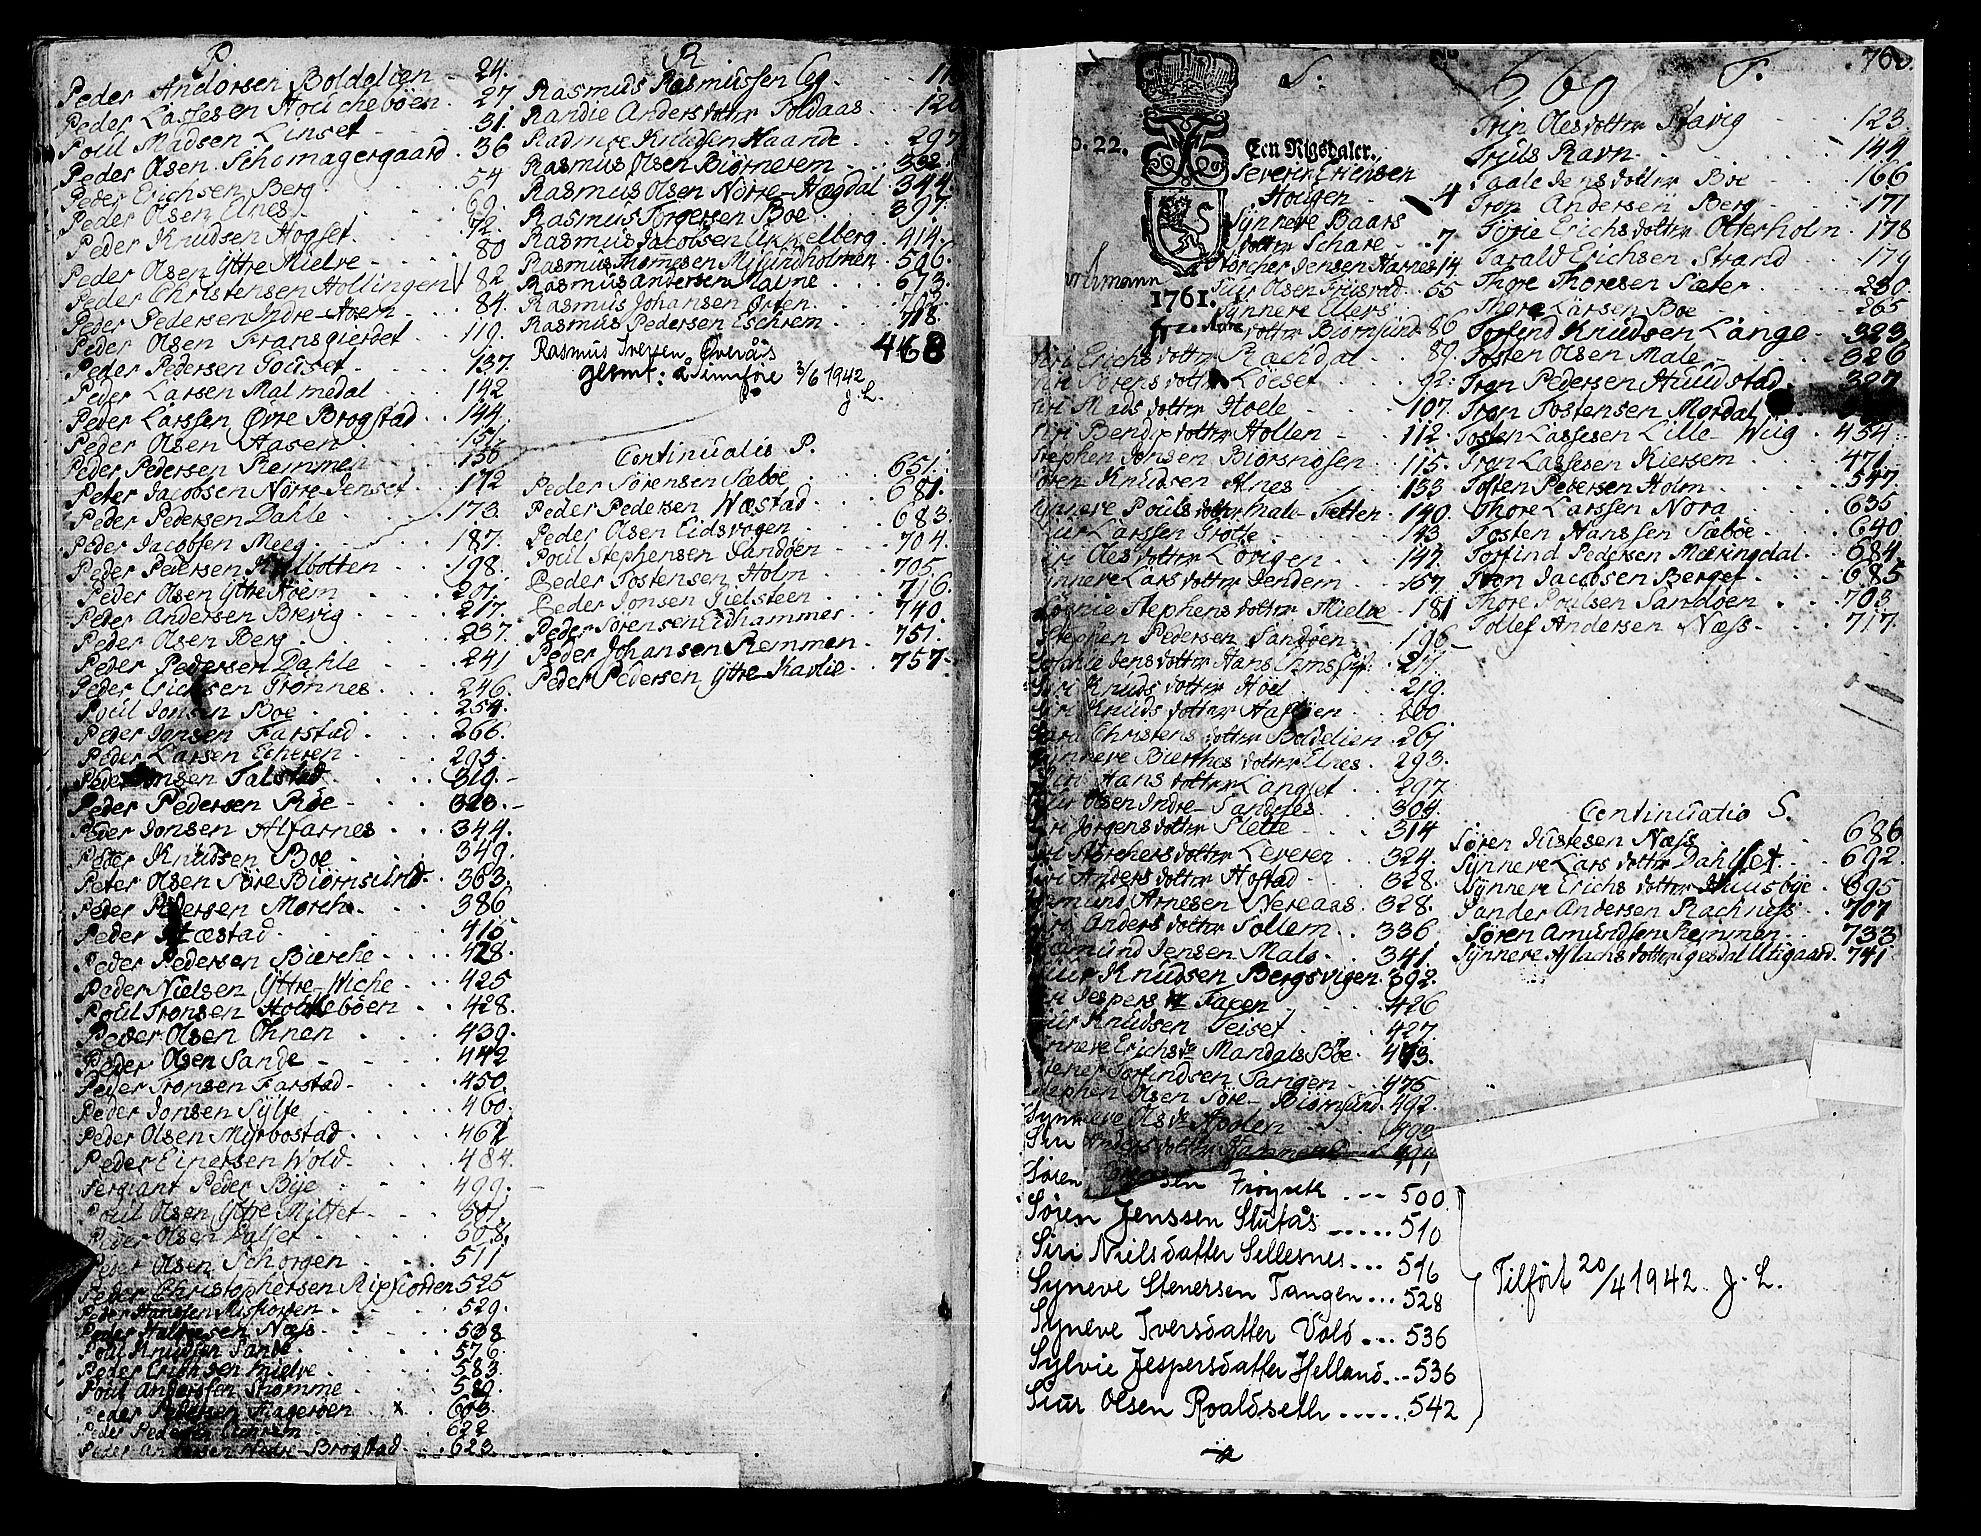 P.
Peder Andersen Boldalien - 24.
Peder Lassesen Houcheböen . 27
Poul Madsen Linset . 31.
Peder Olsen Schomagergaard . 36
Peder Erichsen Berg . 54
Peder Olsen Elnes . 69.
Peder Knudsen Hogset . 72.
Peder Olsen Yttre Mielve . 80
Peder Christensen Hollingen 82
Peder Pedersen Indre-Hoem . 84.
Peder Olsen Fransgierdet . 110.
Peder Pedersen Gouset . 137.
Peder Larsen Malmedal . 142
Peder Larssen Øvre Brogstad . 144.
Peder Olsen Aasen . 151.
Peder Pedersen Remmen . 156
Peter Jacobsen Nörre-Jenset . 172
Peder Pedersen Dahle . 173.
Peder Jacobsen Meeg . 187.
Peder Petersen . 198.
Peder Olsen Yttre Hoem . 201.
Peder Andersen Brevig . 217.
Peder Olsen Berg . 237.
Peder Pedersen Dahle . 241
Peder Erichsen Trönnes . 246.
Poul Jonsen Boe . 254.
Peder Jonsen Farstad . 266.
Peder Larsen Echeren . 295.
Peder Talstad . 319.
Peder Pedersen Röe - 323.
Peder Jonsen Alfarnes . 344.
Peder Knudsen Boe . 349.
Peter Olsen Söre Biörnsund . 363.
Peder Pedersen Morch . 386
Peder Stæstad . 415
Peder Pedersen Bierche . 428.
Peder Nielsen Yttre-Wiche . 425
Poul Tronsen Houkebøen . 428.
Peder Olsen Ohnen . 439.
Peder Olsen Sande - 442
Peder Tronsen Farstad . 450.
Peder Jonsen Sylte . 460.
Peder Olsen Myrbostad . 462
Peder Einersen Wold . 484.
Sergiant Peder Bye . 499.
Poul Olsen Yttre Mittet . 501.
Peder Olsen Dalset . 508.
Peder Olsen Schorgen . 511
Peder Christophersen Ripkorten 525
Peder Hansen . 529.
Peder Halvesen Næss . 538
Poul Knudsen Sande . 576.
Peder Erichsen Mielve . 583.
Poul Anderssen Stomme . 589.
Peder Petersen Flageröen x . 603.
Peder Pedersen . 622
Peder Andersen Nedre-Brogstad . 623.
R
Rasmus Rasmussen Eeg . 11
Randie Andersdotter Foldaas . 120
Radmoe Knudsen Haande . 297
Rasmus Olsen Biörnerem . 332.
Rasmus Olsen Nörre-Hægdal . 344.
Rasmus Torgersen Boe . 397.
Rasmus Jacobsen Uckelberg . 414.
Rasmus Thomesen Misundholmen . 506.
Rasmus Andersen Malme . 673.
Rasmus Johansen Orten . 703.
Rasmus Pedersen Eschrem . 718.
Rasmus Iversen Øverås 468
glemt: å innføre 3/6 1942
J. L.
Continuatio P.
Peder Sörensen Sæböe . 651.
Peder Pedersen Wæstad . 681.
Peder Olsen Eidsvogen . 683.
Poul Stephensen Sandöen . 704.
Peder Tostensen Holm . 705
Peder Jonsen Gielsteen . 716.
Peder Sörensen Eidhammer . 740.
Peder Johansen Remmen . 751.
Peder Pedersen Yttre-Karlie . 757.
No. 22.
Een Rigsdaler.
1761.
S. 560 T. 760.
Severin Eriensen
Hougen - 4
Synneve Baars
dotter Schare . 7
Storcher Jensen Harnes 14
Siur Olsen Friisrad . 55
Synneve Olers
dotter Biörnsund . 86
Siri Erichs dotter Rachdal . 89.
Siri Sörens dotter Löeset . 92.
Siri Mads dotter Hoele . 107.
Siri Bendix dotter Hollen - 112.
Stephen Jonsen Biörsnosen . 115.
Sören Knudsen Elnes . 133
Synneve Pouls dotter Male Tetten . 140.
Siur Larssen Grotte . 143
Siri Oles dotter Lövigen . 147.
Synneve Lars dotter Jendem . 157.
Stephens dotter Mielve . 181
Stephen Pedersen Sandöen . 196
Sophie Jens dotter Hans . 217.
Siri Knuds dotter Hoel . 219.
Siri Knuds dotter Haslöen . 260.
Christens dotter Boldelien . 261
Synneve Bierthes dotter Elnes . 293.
Siri Hans dotter Langset . 297.
Siur Olsen Indre-Sandnes . 304.
Siri Jörgens dotter Slette . 314
Siri Störchers dotter Leveren . 324.
Siri Anders dotter Hostad . 328.
Amund Arnesen Nereaas . 328.
Siri Anders dotter Sollem . 336
Sæmund Jensen Malo . 341.
Siur Knudsen Bergsvigen . 392.
Siri Jespers dr Faxen . 426
Siur Knudsen Teiset . 427.
Synneve Erichs dr Mandals Böe . 473.
Stener Torfindsen Tangen . 475
Stephen Olsen Söre-Biörnsund . 492.
Synneve Ols dr Apolen . 493
Siri Anders dotter
Søren Frøyseth . -- 500
Søren Jenssen Slutås ..... 510
Siri Nielsdatter Sellesnes ... 516
Syneve Stenersen Tangen ... 528
Syneve Iversdatter Vold ... 536
Sylvie Jespersdatter Helland .. 536
Siur Olsen Roaldseth ..... 542
Tilført 20/4 1942. J. L.
Trin Oles dotter Stavig . 123.
Truls Ravn . 144
Jens dotter Boe . 166
Tron Andersen Berg . 177
Torie Erichs dotter Otterholm . 178
Tarald Erichsen Strand . 179
Thore Thoresen Sæter . 230.
Thore Larsen Boe . 265
Torfind Knudsen Lange . 323.
Tosten Olsen Male . 326
Tron Pedersen Hulldstad . 327
Tron Tostensen Mordal
Tosten Lassesen Lille-Wiig . 454.
Tron Lassesen Kiersem . 471.
Tosten Petersen Holm . 547.
Thore Larssen Nora . 635.
Tosten Hanssen Sæböe . 640.
Torfind Pedersen Mæringdal . 684.
Tron Jacobsen Berget . 685
Thore Poulsen Sandöen . 703.
Tollef Andersen Næss . 717.
Continuatio S.
Søren Næss . 686
Synneve Lars dotter Dahlset . 692.
Synneve Erichs dotter Huusbye . 695
Sander Andersen Rachness . 707
Søren Amundsen Remmen . 733
Synneve Aslachs dotter Utigaard . 741